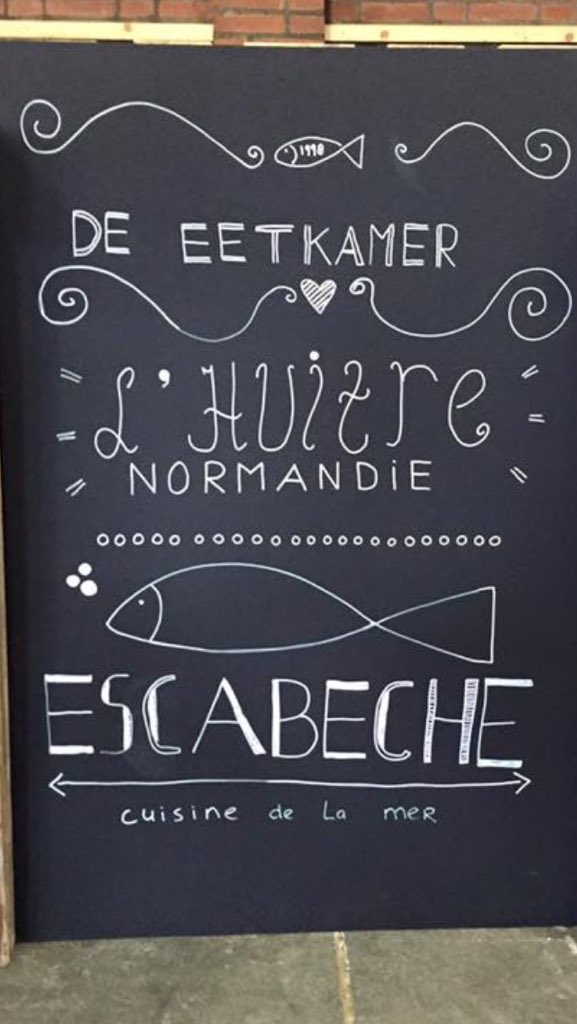 1998
DE EETKAMER
L'HUiTre
NORMANDiE
ESCABECHE
cuisine de La meR